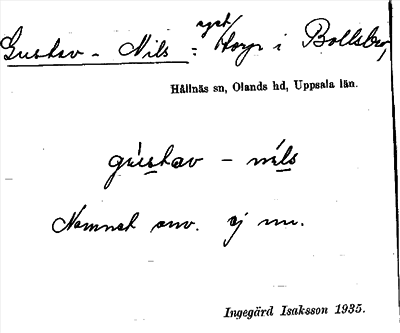 Gustav - Nils : nyst torp i Bollsbo,
Hållnäs sn, Olands hd, Uppsala län.
gústav - níls
Namnet anv. ej nu.
Ingegärd Isaksson 1935.